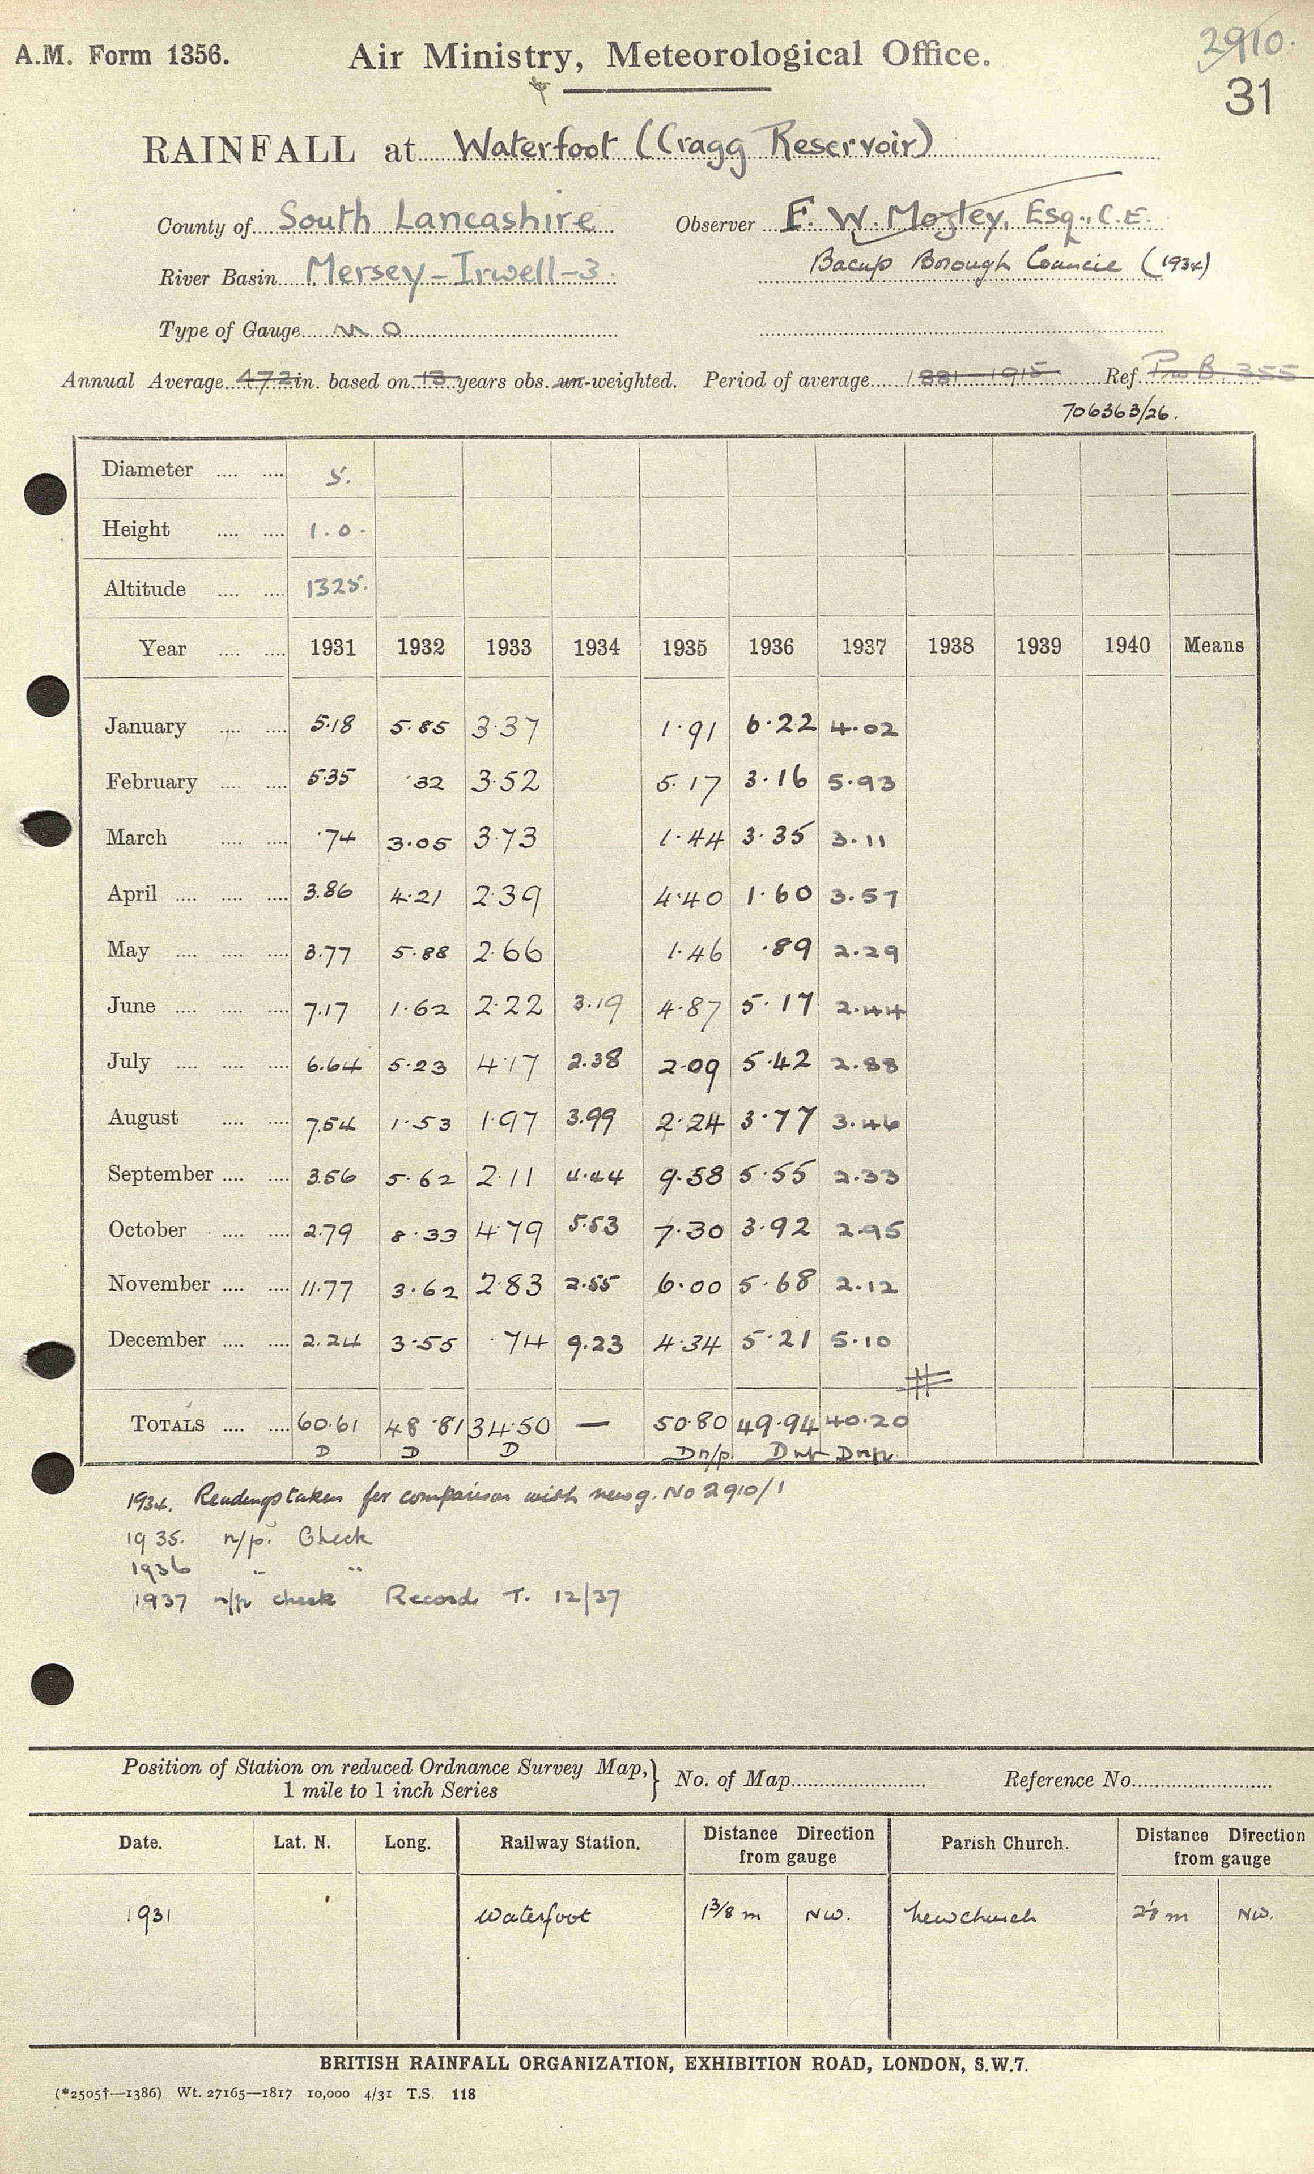 A.M. Form 1356.
Air Ministry, Meteorological Office.
2910.
31
RAINFALL at Waterfoot (Cragg Reservoir)
County of South Lancashire Observer F. W. Mozley, Esq., C.E.
River Basin Mersey-Irwell-3. Bacup Borough Council (1934)
Type of Gauge M O
Annual Average 472 in. based on 13 years obs. un-weighted. Period of average 1881-1915 Ref. Pro B. 355
706363/26.
Diameter 5.
Height 1.0.
Altitude 1325.
Year 1931 1932 1933 1934 1935 1936 1937 1938 1939 1940 Means
January 5.18 5.85 3.37 1.91 6.22 4.02
February 5.35 .32 3.52 5.17 3.16 5.93
March .74 3.05 3.73 1.44 3.35 3.11
April 3.86 4.21 2.39 4.40 1.60 3.57
May 3.77 5.88 2.66 1.46 .89 2.29
June 7.17 1.62 2.22 3.19 4.87 5.17 2.44
July 6.64 5.23 4.17 2.38 2.09 5.42 2.88
August 7.54 1.53 1.97 3.99 2.24 3.77 3.46
September 3.56 5.62 2.11 4.44 9.58 5.55 2.33
October 2.79 8.33 4.79 5.53 7.30 3.92 2.95
November 11.77 3.62 2.83 2.55 6.00 5.68 2.12
December 2.24 3.55 .74 9.23 4.34 5.21 5.10
TOTALS 60.61 48.81 34.50 — 50.80 49.94 40.20
D D D Dn/p. Dn/p Dn/p.
1934. Readings taken for comparison with new g. No 2910/1
1935. n/p. Check
1936 " "
1937 n/p check Record T. 12/37
Position of Station on reduced Ordnance Survey Map, } No. of Map Reference No.
1 mile to 1 inch Series
Date. Lat. N. Long. Railway Station. Distance Direction from gauge Parish Church. Distance Direction from gauge
1931 Waterfoot 1 3/8 m NW. Newchurch m NW.
BRITISH RAINFALL ORGANIZATION, EXHIBITION ROAD, LONDON, S.W.7.
(*2505†—1386) Wt. 27165—1817 10,000 4/31 T.S. 118